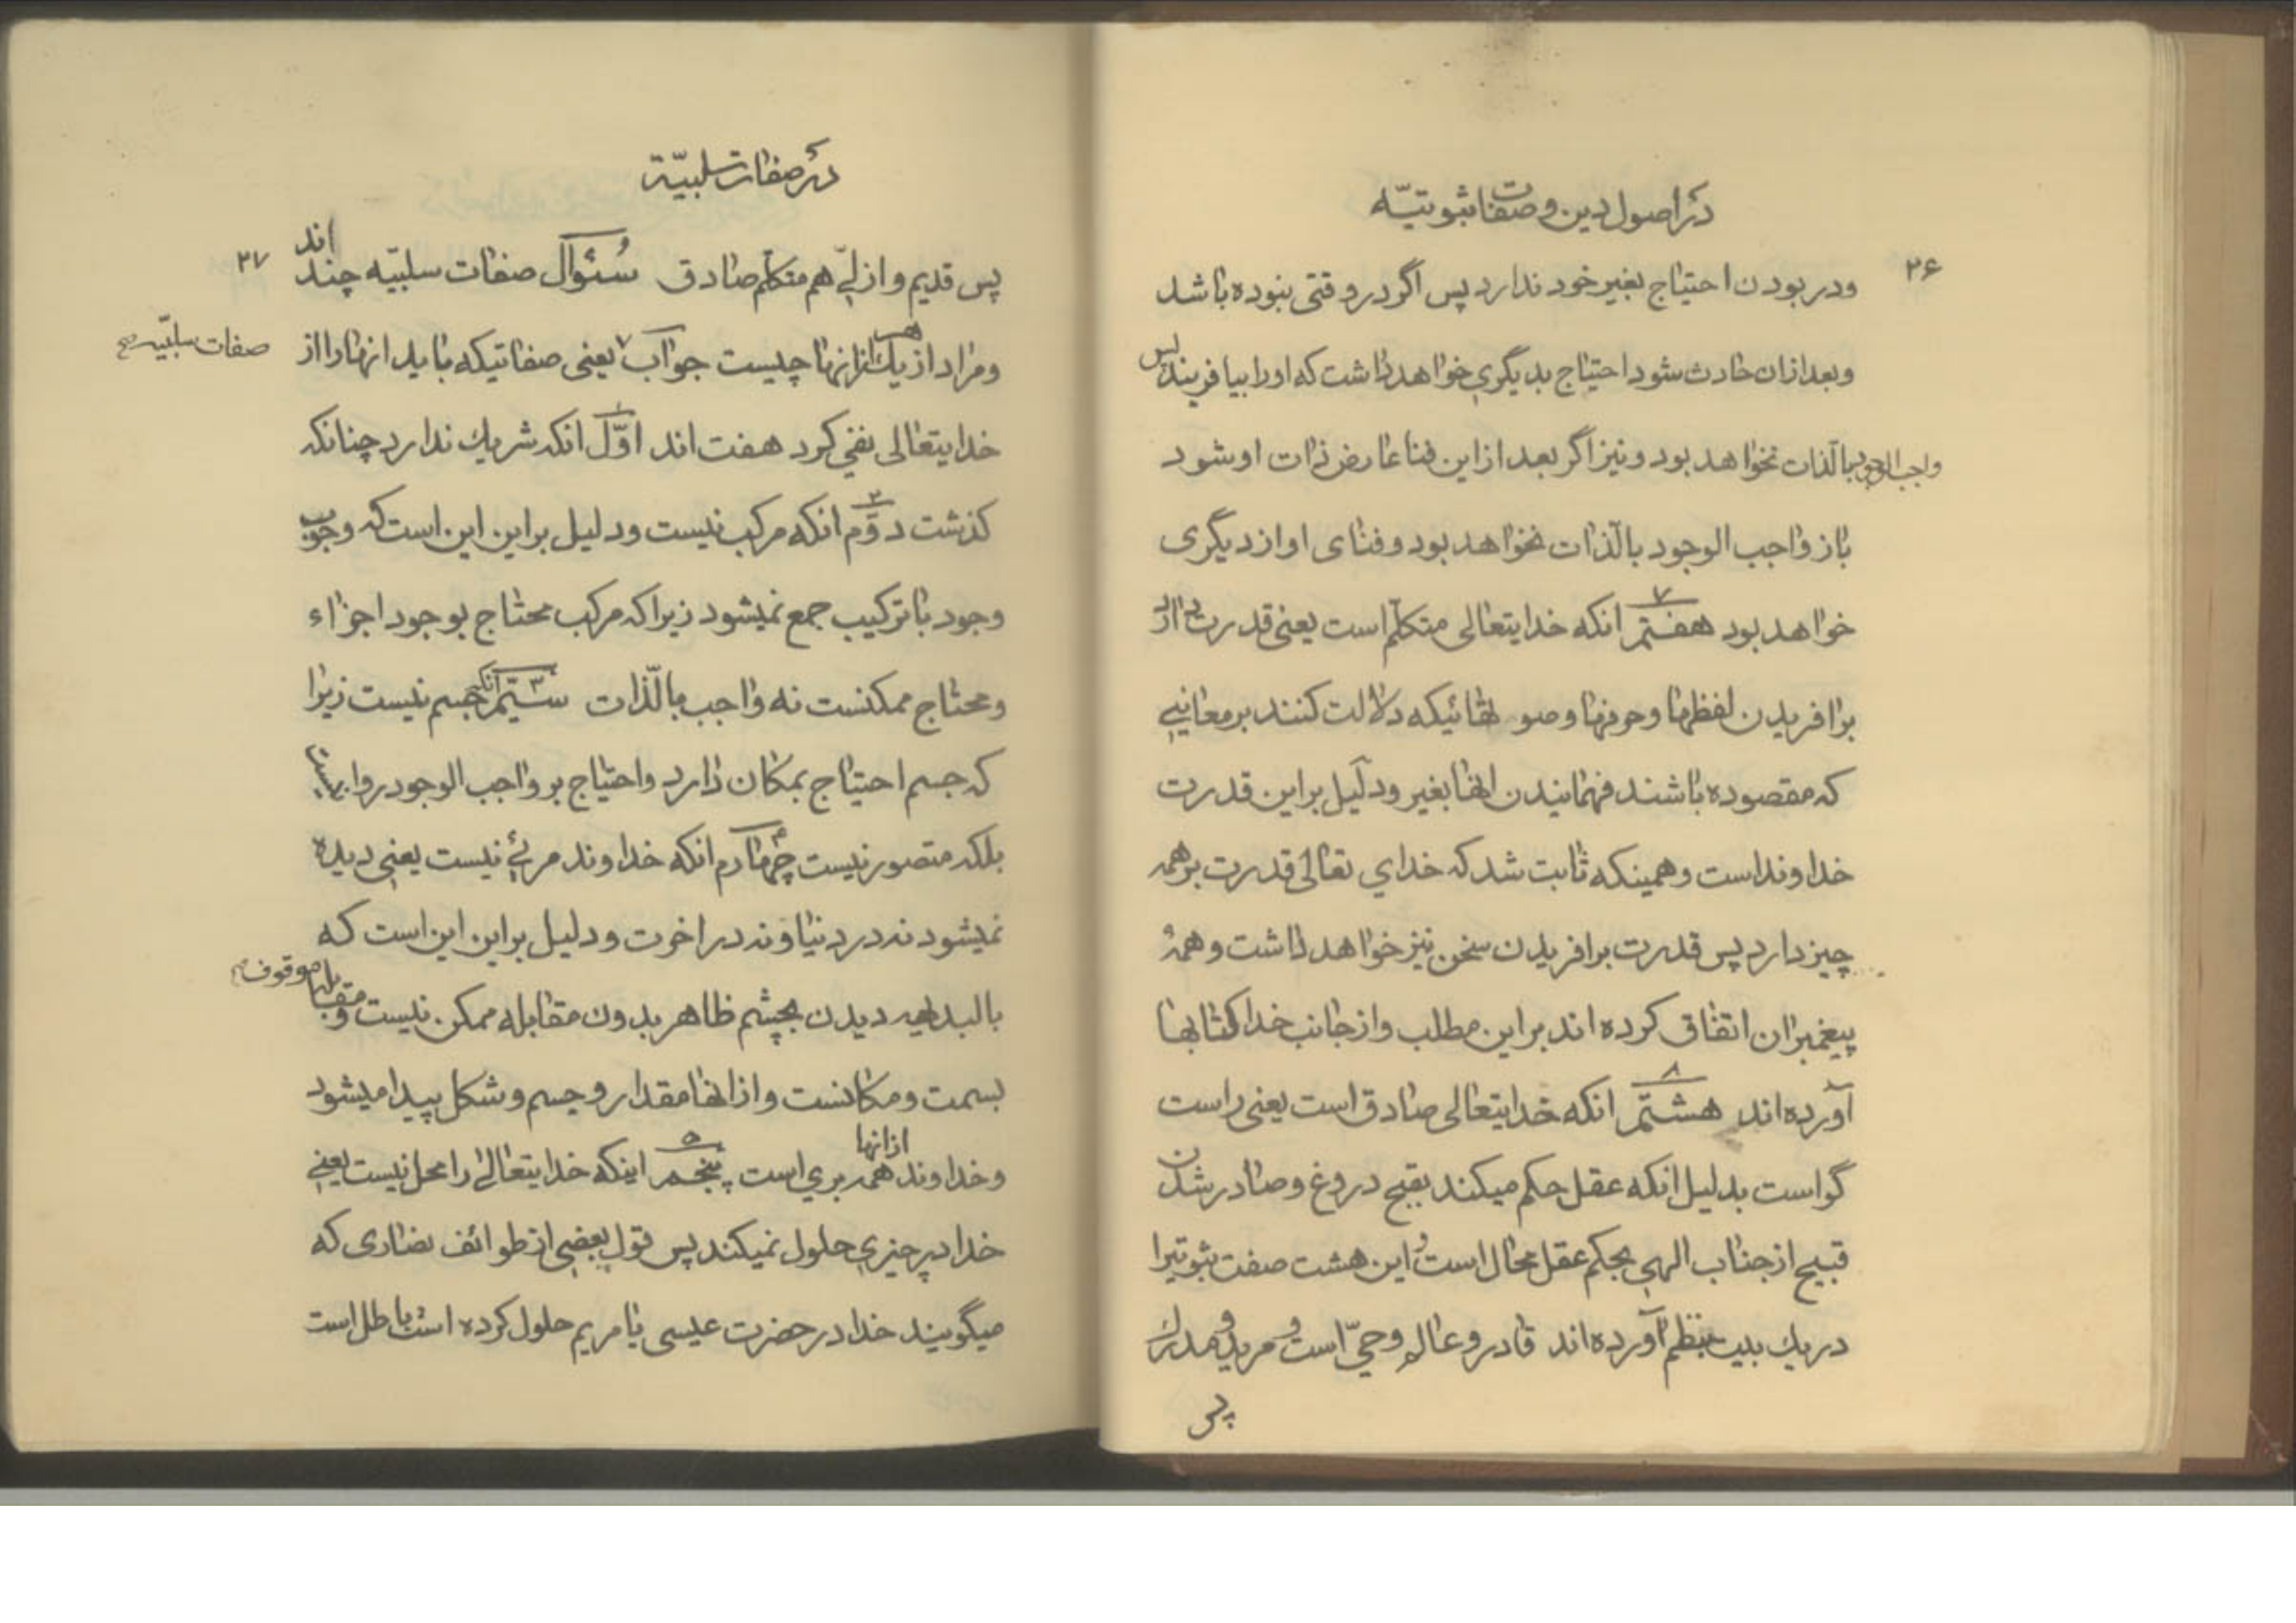 در اصول دین و صفات ثبوتیّه
۲۶
ودر بودن احتیاج بغیر خود ندارد پس اگر در وقتی بنوده باشد
وبعد ازان حادث شود احتیاج بدیگری خواهد داشت که اورا بیافریند پس
واجب الوجود بالذات نخواهد بود ونیز اگر بعد از این فنا عارض ذات او شود
باز واجب الوجود بالذات نخواهد بود وفنای او از دیگری
خواهد بود هفتم ۷ انکه خدایتعالی متکلّم است یعنی قدرت دارد
برافریدن لفظها وحرفها وصو تهائیکه دلالت کنند بر معانیی
که مقصوده باشند فهمانیدن انها بغیر ودلیل براین قدرت
خداونداست وهمینکه ثابت شد که خدای تعالی قدرت برهمه
چیز دارد پس قدرت برافریدن سخن نیز خواهد داشت وهمهٔ
پیغمبران اتفاق کرده اند براین مطلب واز جانب خدا کتابها
آورده اند هشتم ۸ انکه خدایتعالی صادق است یعنی راست
گواست بدلیل انکه عقل حکم میکند بقبح دروغ وصادر شدن
قبیح از جناب الهی بحکم عقل محال است و این هشت صفت ثبوتیرا
دریك بیت بنظم آورده اند قادر و عالم وحیّ است و مرید و مدرك
پس
در صفات سلبیّة
۲۷
پس قدیم و ازلی هم متکلّم صادق سُئوال صفات سلبیّه چند اند
ومراد از هر یك از انها چیست جواب یعنی صفاتیکه باید انها را از
صفات سلبیّه
خدایتعالی نفی کرد هفت اند اوّل ۱ انکه شریك ندارد چنانکه
کذشت دوّم ۲ انکه مرکب نیست ودلیل براین این است که وجوب
وجود با ترکیب جمع نمیشود زیرا که مرکب محتاج بوجود اجزاء
ومحتاج ممکنست نه واجب بالذّات سیّم ۳ انکه جسم نیست زیرا
که جسم احتیاج بمکان دارد واحتیاج بر واجب الوجود روا نیست
بلکه متصور نیست چهارم ۴ انکه خداوند مرئی نیست یعنی دیده
نمیشود نه در دنیا ونه در اخرت ودلیل براین این است که
بالبدیهه دیدن بچشم ظاهر بدون مقابله ممکن نیست و مقابله موقوف
بسمت ومکانست واز انها مقدار وجسم وشکل پیدا میشود
وخداوند از انها همه بری است پنجم ۵ اینکه خدایتعالی را محل نیست یعنی
خدا در چیزی حلول نمیکند پس قول بعضی از طوائف نصاری که
میگویند خدا در حضرت عیسی یا مریم حلول کرده است باطل است